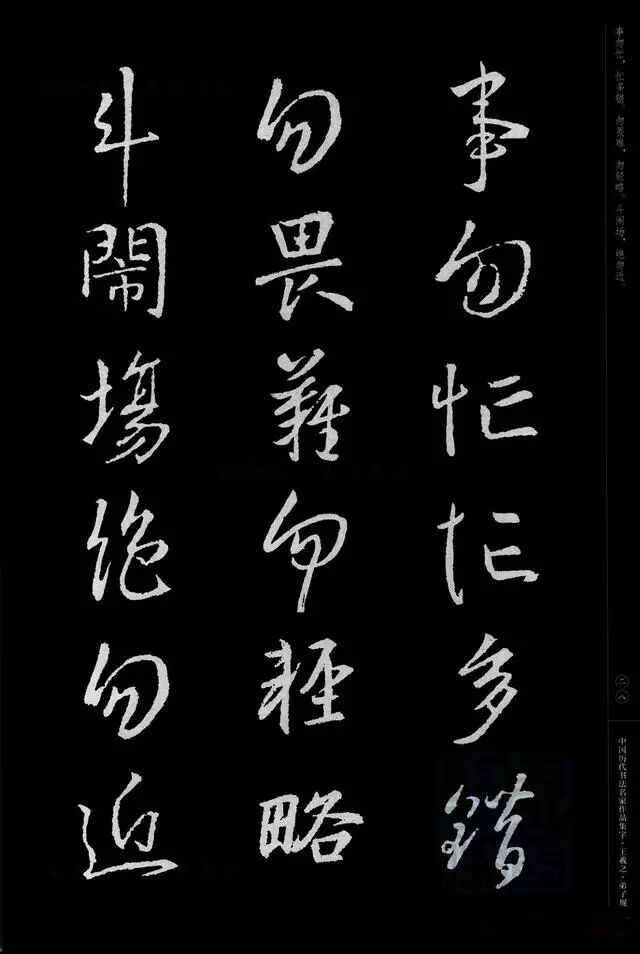 事勿忙、忙多错。勿畏难，勿轻略。斗闹场，绝勿近。
事勿忙忙多錯
勿畏難勿輕略
斗鬧場絶勿近
二八
中国历代书法名家作品集字·王羲之·弟子规